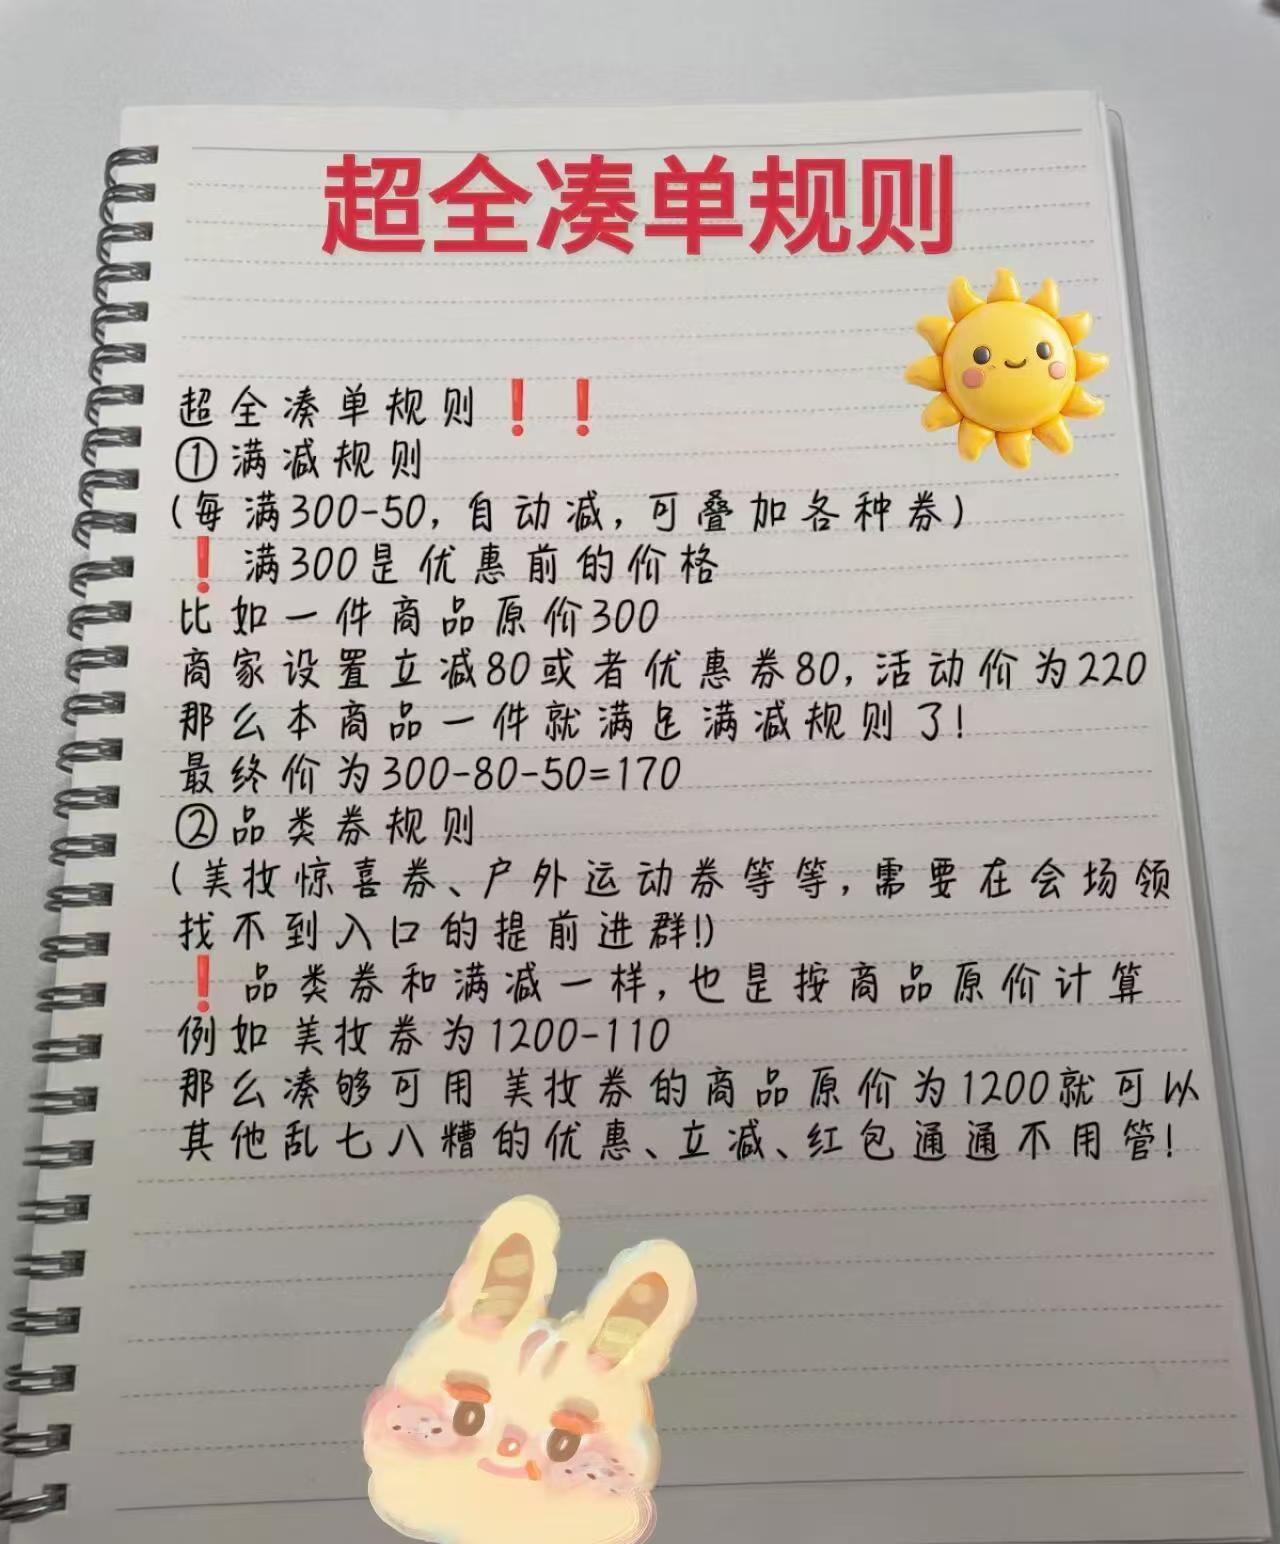 超全凑单规则
超全凑单规则❗❗
①满减规则
(每满300-50,自动减,可叠加各种券)
❗满300是优惠前的价格
比如一件商品原价300
商家设置立减80或者优惠券80,活动价为220
那么本商品一件就满足满减规则了!
最终价为300-80-50=170
②品类券规则
(美妆惊喜券、户外运动券等等,需要在会场领
找不到入口的提前进群!)
❗品类券和满减一样,也是按商品原价计算
例如美妆券为1200-110
那么凑够可用美妆券的商品原价为1200就可以
其他乱七八糟的优惠、立减、红包通通不用管!